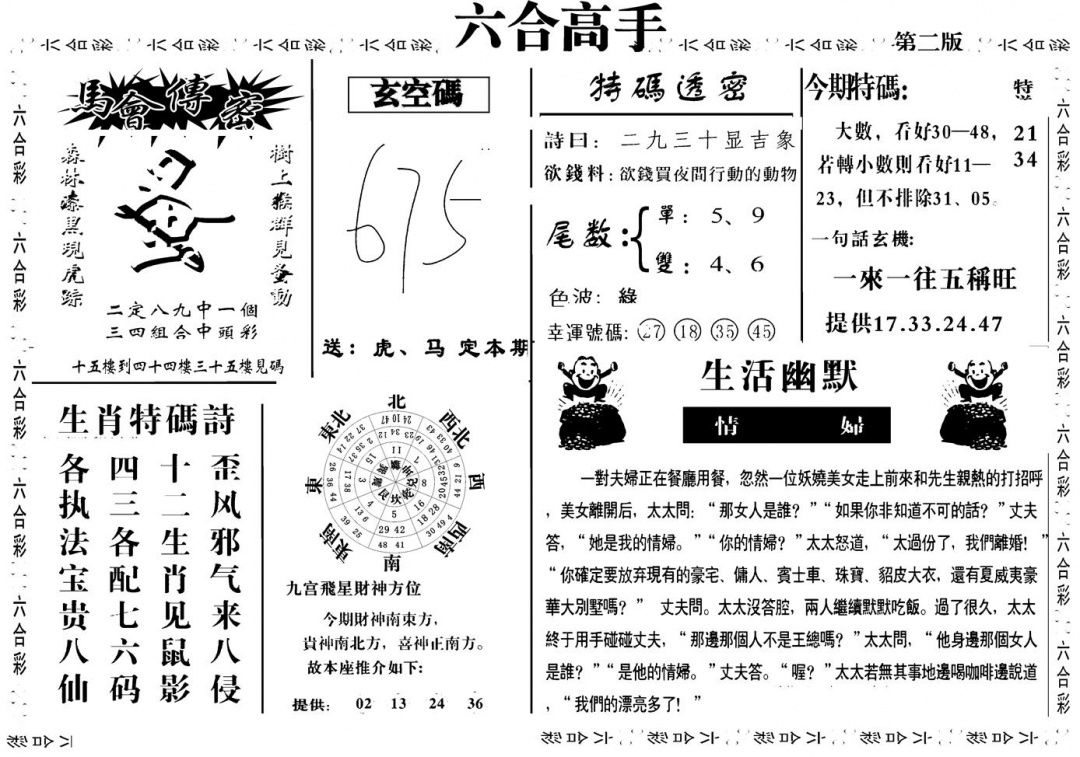 六合高手
第二版
馬會傳密
森林漆黑現虎踪
樹上猴群見蚤動
二定八九中一個
三四組合中頭彩
十五樓到四十四樓三十五樓見碼
玄空碼
675
送：虎、马 定本期
特碼透密
詩曰：二九三十显吉象
欲錢料：欲錢買夜間行動的動物
尾数：
單：5、9
雙：4、6
色波：綠
幸運號碼：27 18 35 45
今期特碼：
特
大數，看好30—48，
若轉小數則看好11—
23，但不排除31、05。
21
34
一句話玄機：
一來一往五稱旺
提供17.33.24.47
生肖特碼詩
歪风邪气来八侵
十二生肖见鼠影
四三各配七六码
各执法宝贵八仙
北
西北
西
西南
南
東南
東
東北
九宫飛星財神方位
今期財神南東方，
貴神南北方，喜神正南方。
故本座推介如下：
提供： 02 13 24 36
生活幽默
情婦
一對夫婦正在餐廳用餐，忽然一位妖嬈美女走上前來和先生親熱的打招呼
，美女離開后，太太問：“那女人是誰？”“如果你非知道不可的話？”丈夫
答，“她是我的情婦。”“你的情婦？”太太怒道，“太過份了，我們離婚！”
“你確定要放弃現有的豪宅、傭人、賓士車、珠寶、貂皮大衣，還有夏威夷豪
華大別墅嗎？” 丈夫問。太太沒答腔，兩人繼續默默吃飯。過了很久，太太
終于用手碰碰丈夫，“那邊那個人不是王總嗎？”太太問，“他身邊那個女人
是誰？”“是他的情婦。”丈夫答。“喔？”太太若無其事地邊喝咖啡邊說道
，“我們的漂亮多了！”
六合彩